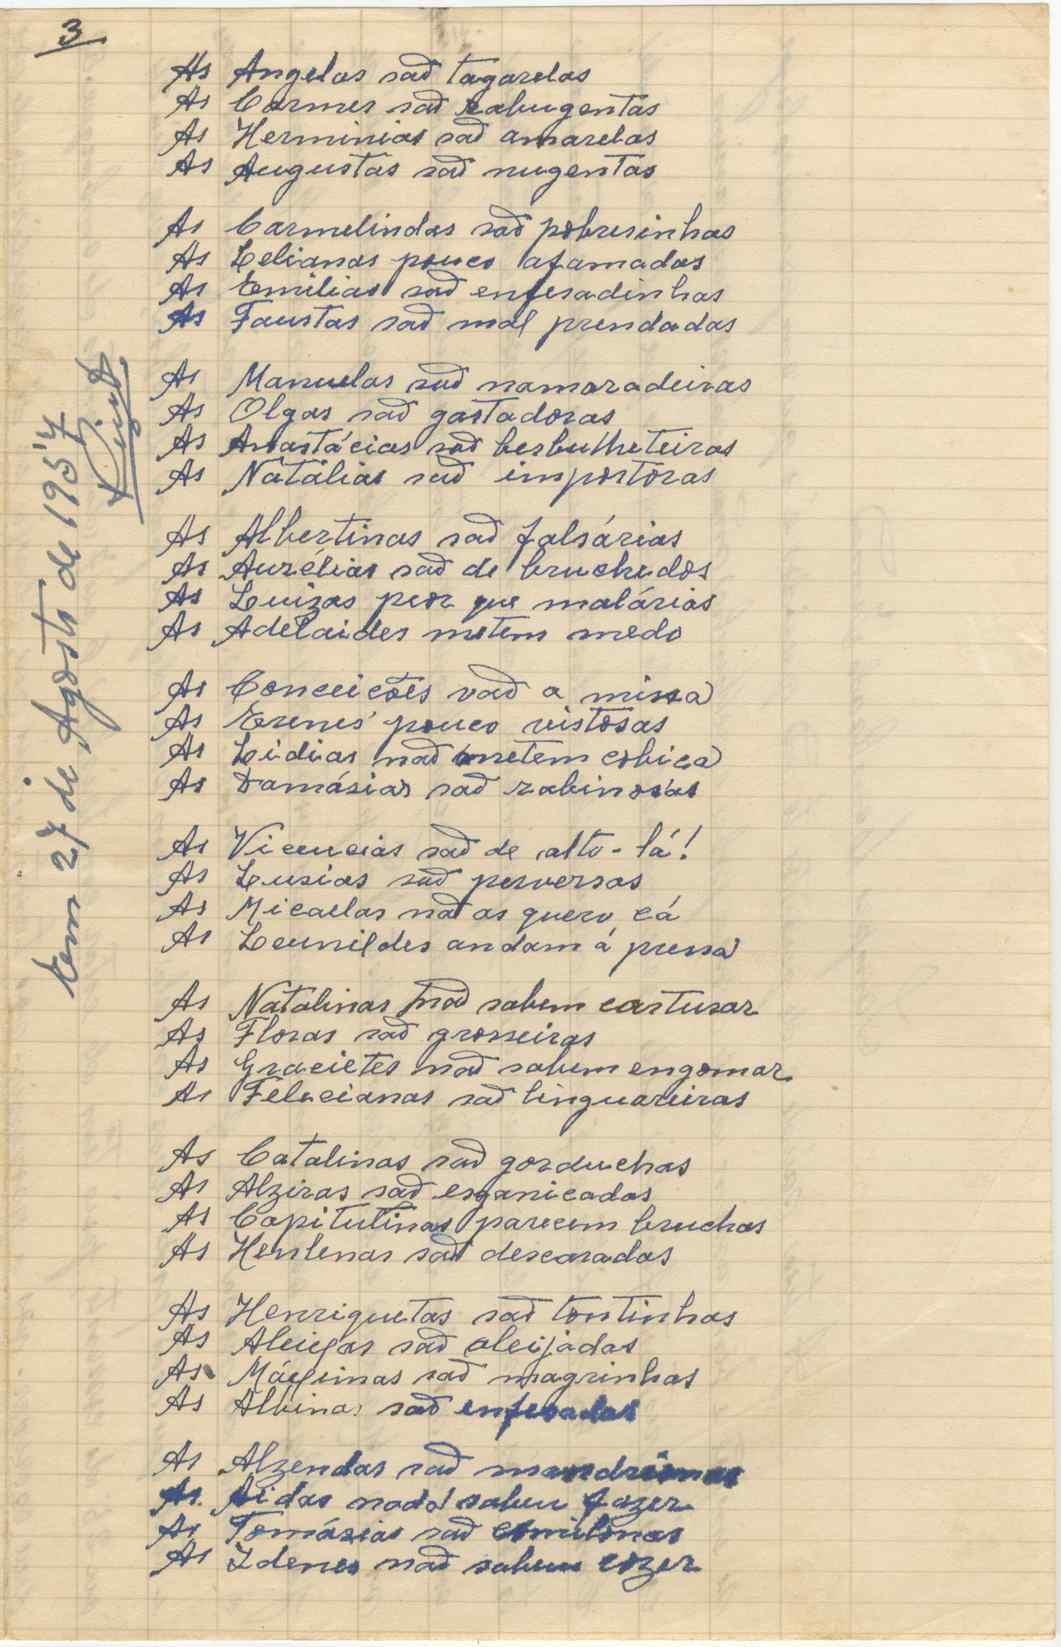 3
As Angelas são tagarelas
As Carmes são rabugentas
As Herminias são amarelas
As Augustas são nugentas
As Carmelindas são pobresinhas
As Lelianas pouco afamadas
As Emilias são enfesadinhas
As Faustas são mal prendadas
As Manuelas são namoradeiras
As Olgas são gastadoras
As Anastácias são besbulheteiras
As Natálias são impostoras
As Albertinas são falsárias
As Aurélias são de bruchedos
As Luizas peor que malárias
As Adelaides metem medo
As Conceicões vão a missa
As Erenes pouco vistosas
As Lidias não metem cobica
As Damásias são rabinosas
As Vicencias são de alto-lá!
As Lusias são perversas
As Micaelas não as quero cá
As Leunildes andam á pressa
As Natalinas não sabem costurar
As Floras são grosseiras
As Gracietes não sabem engomar
As Felecianas são linguareiras
As Catalinas são gorduchas
As Alziras são esganicadas
As Capitulinas parecem bruchas
As Henlenas são descaradas
As Henriquetas são tontinhas
As são aleijadas
As Máximas são magrinhas
As Albinas são enfesadas
As Alzendas são mandrionas
As Aidas nada sabem fazer
As Tomásias são comilonas
As Idenes não sabem cozer
em 27 de Agosto de 1957